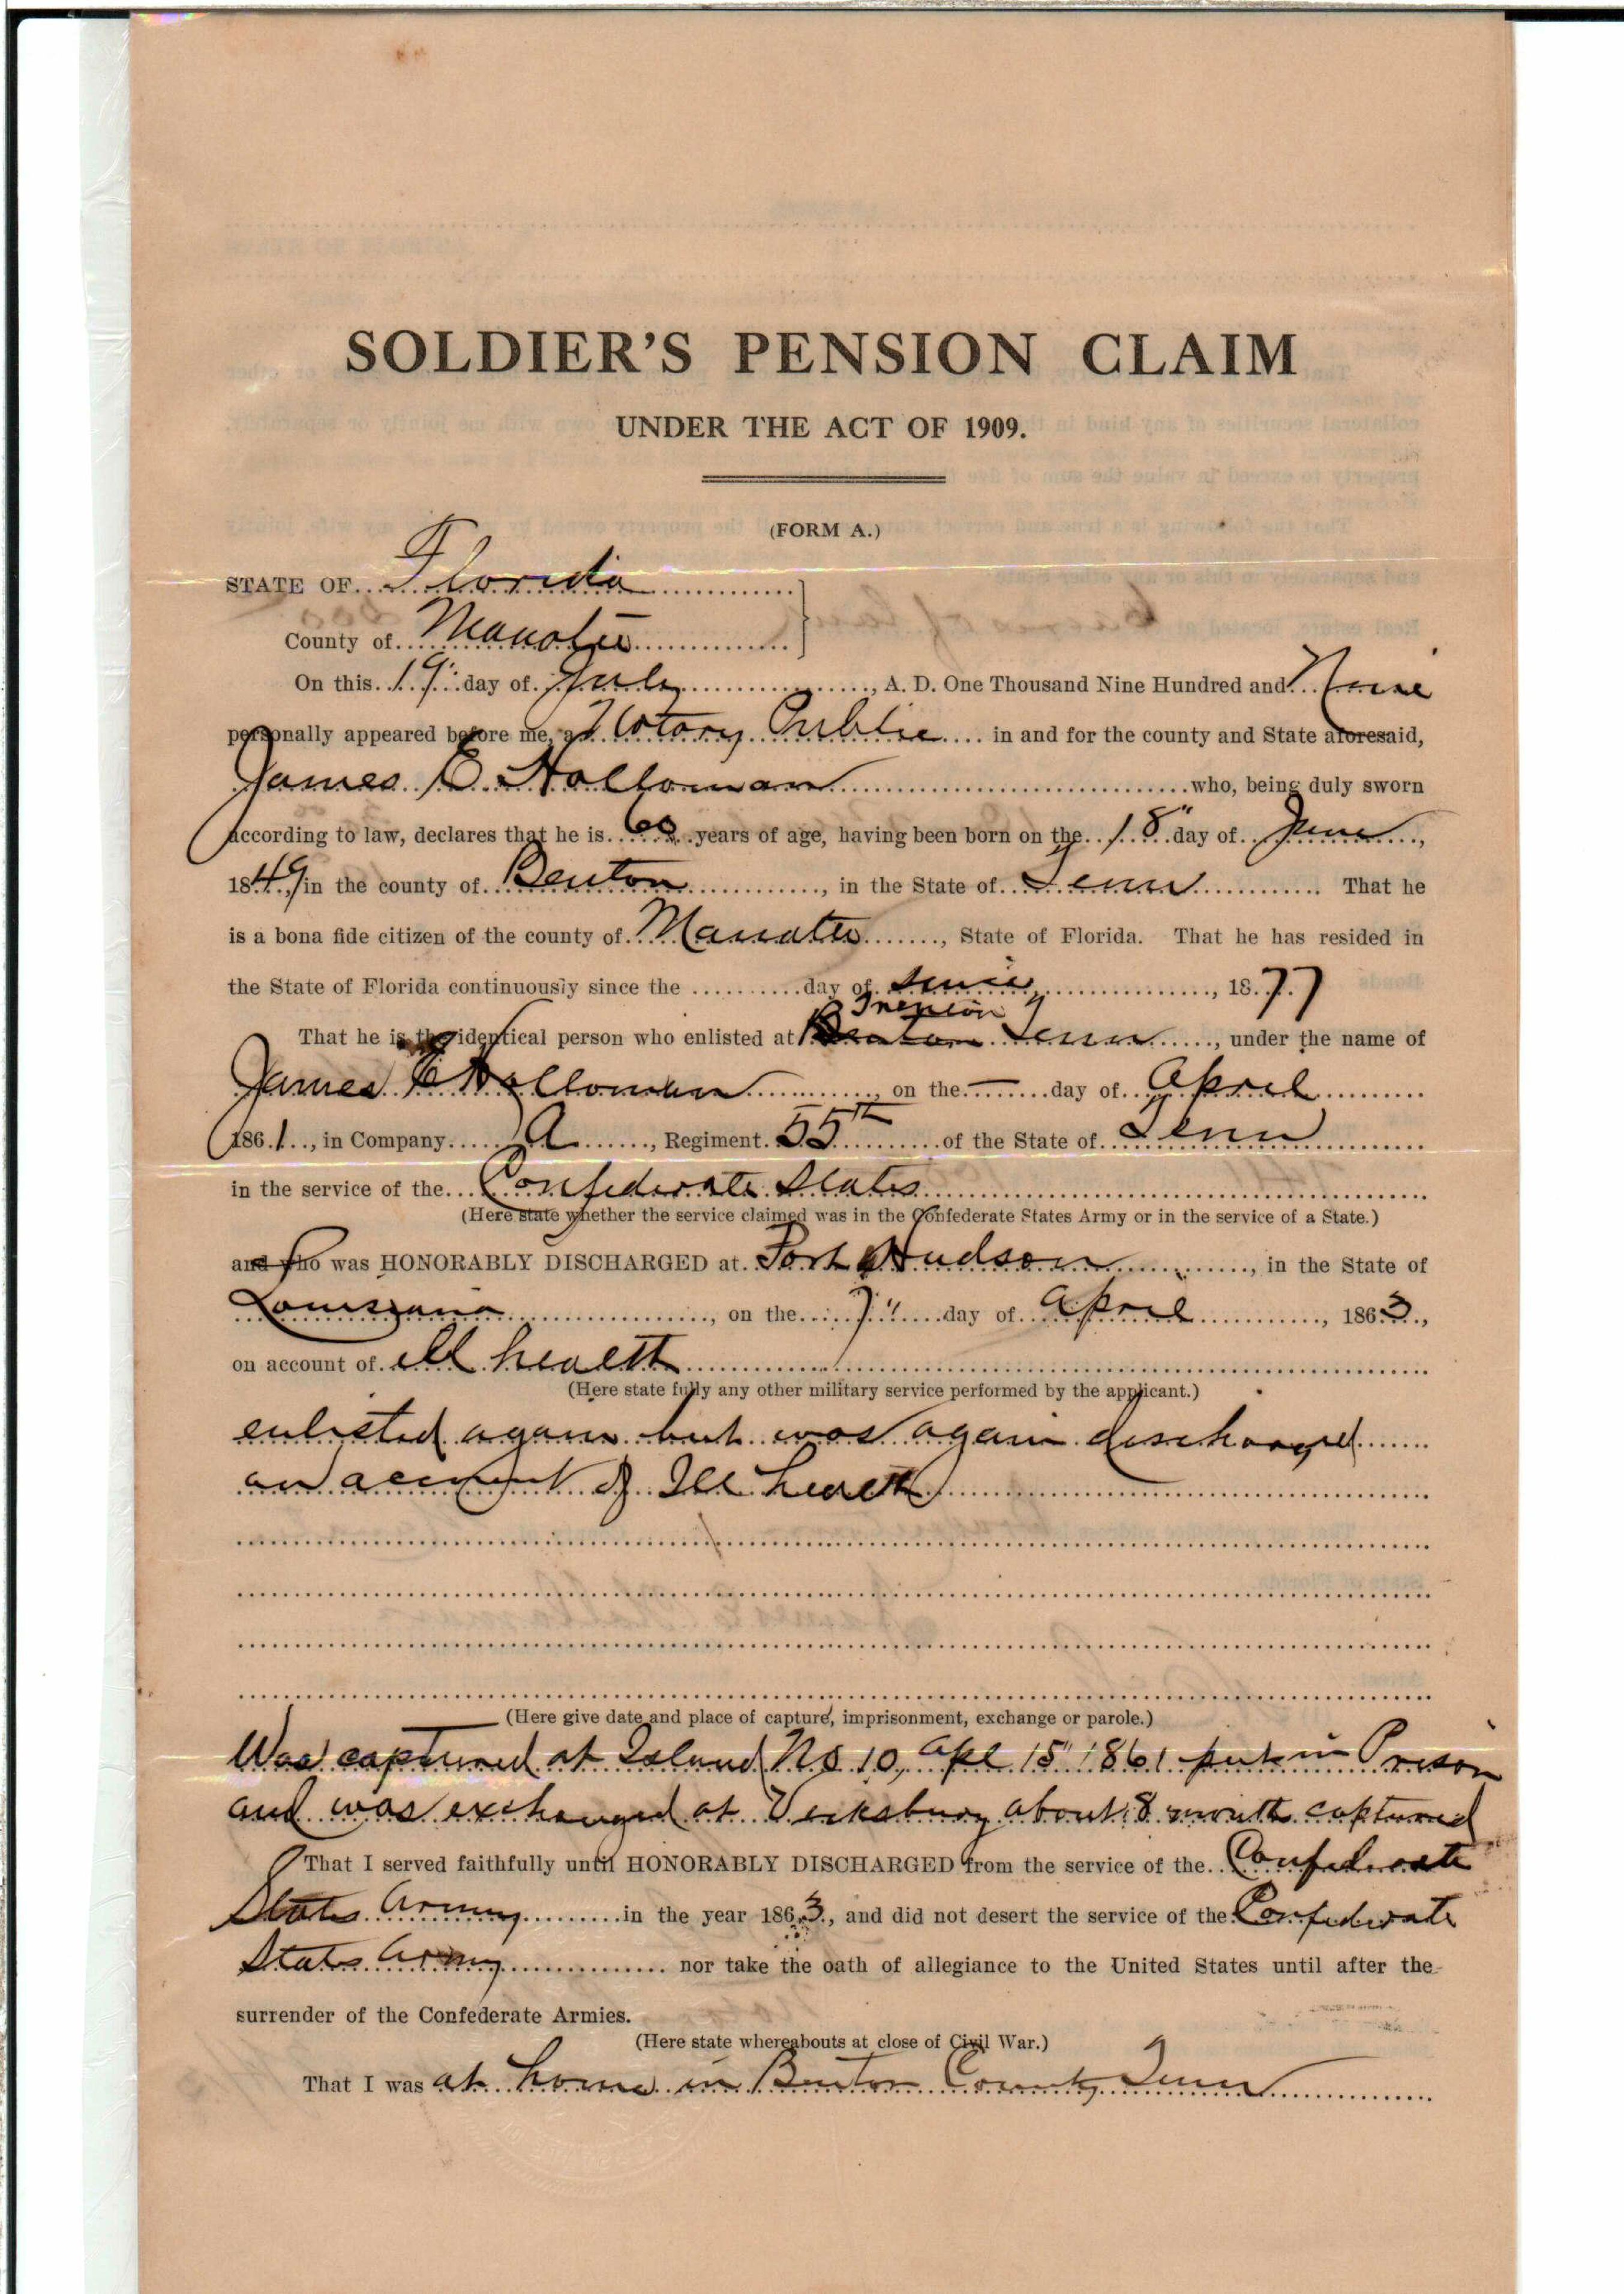 SOLDIER'S PENSION CLAIM
UNDER THE ACT OF 1909.
(FORM A.)
STATE OF Florida
County of Manatee
On this 19" day of July, A. D. One Thousand Nine Hundred and Nine
personally appeared before me, a Notary Public in and for the county and State aforesaid,
James E. Holloman who, being duly sworn
according to law, declares that he is 60 years of age, having been born on the 18" day of June,
1849, in the county of Benton, in the State of Tenn. That he
is a bona fide citizen of the county of Manatee, State of Florida. That he has resided in
the State of Florida continuously since the day of since, 1877
Trenton
That he is the identical person who enlisted at Benton Tenn, under the name of
James E Holloman, on the — day of April
1861, in Company A, Regiment 55th of the State of Tenn
in the service of the Confederate States
(Here state whether the service claimed was in the Confederate States Army or in the service of a State.)
and who was HONORABLY DISCHARGED at Port Hudson, in the State of
Louisiana, on the 7" day of April, 1863,
on account of ill health
(Here state fully any other military service performed by the applicant.)
enlisted again but was again discharged
on account of Ill health
(Here give date and place of capture, imprisonment, exchange or parole.)
Was captured at Island No 10, Apl 15" 1861 put in Prison
and was exchanged at Vicksburg about 8 month captured
That I served faithfully until HONORABLY DISCHARGED from the service of the Confederate
States Army in the year 1863, and did not desert the service of the Confederate
States Army nor take the oath of allegiance to the United States until after the
surrender of the Confederate Armies.
(Here state whereabouts at close of Civil War.)
That I was at home in Benton County Tenn